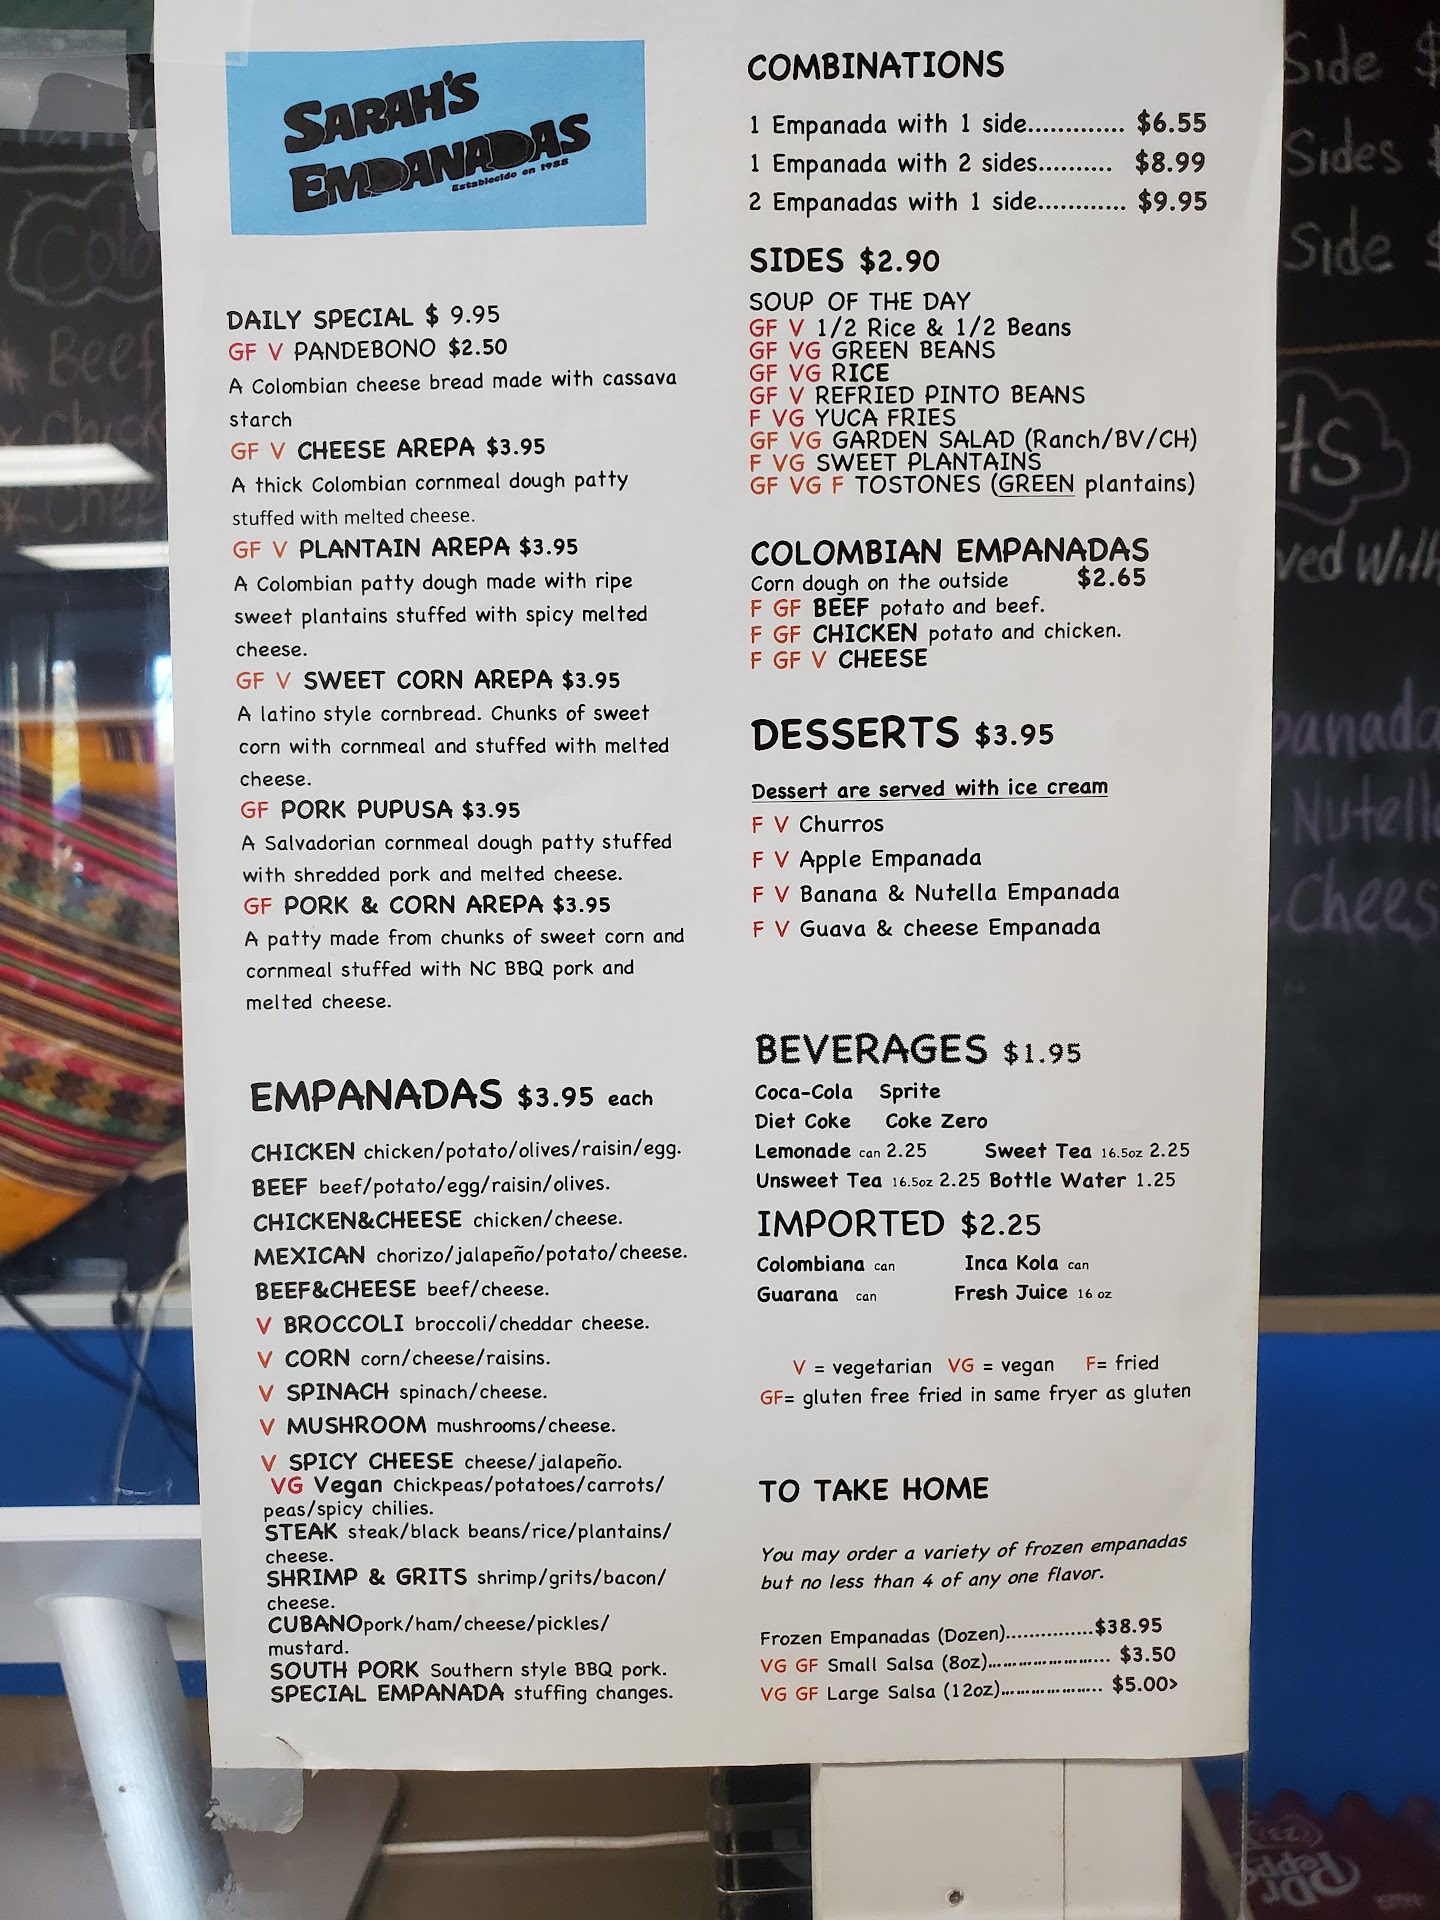 SARAH'S
EMPANADAS
Establecido en 1988
DAILY SPECIAL $ 9.95
GF V PANDEBONO $2.50
A Colombian cheese bread made with cassava
starch
GF V CHEESE AREPA $3.95
A thick Colombian cornmeal dough patty
stuffed with melted cheese.
GF V PLANTAIN AREPA $3.95
A Colombian patty dough made with ripe
sweet plantains stuffed with spicy melted
cheese.
GF V SWEET CORN AREPA $3.95
A latino style cornbread. Chunks of sweet
corn with cornmeal and stuffed with melted
cheese.
GF PORK PUPUSA $3.95
A Salvadorian cornmeal dough patty stuffed
with shredded pork and melted cheese.
GF PORK & CORN AREPA $3.95
A patty made from chunks of sweet corn and
cornmeal stuffed with NC BBQ pork and
melted cheese.
EMPANADAS $3.95 each
CHICKEN chicken/potato/olives/raisin/egg.
BEEF beef/potato/egg/raisin/olives.
CHICKEN&CHEESE chicken/cheese.
MEXICAN chorizo/jalapeño/potato/cheese.
BEEF&CHEESE beef/cheese.
V BROCCOLI broccoli/cheddar cheese.
V CORN corn/cheese/raisins.
V SPINACH spinach/cheese.
V MUSHROOM mushrooms/cheese.
V SPICY CHEESE cheese/jalapeño.
VG Vegan Chickpeas/potatoes/carrots/
peas/spicy chilies.
STEAK steak/black beans/rice/plantains/
cheese.
SHRIMP & GRITS shrimp/grits/bacon/
cheese.
CUBANOpork/ham/cheese/pickles/
mustard.
SOUTH PORK Southern style BBQ pork.
SPECIAL EMPANADA stuffing changes.
COMBINATIONS
1 Empanada with 1 side............. $6.55
1 Empanada with 2 sides.......... $8.99
2 Empanadas with 1 side............ $9.95
SIDES $2.90
SOUP OF THE DAY
GF V 1/2 Rice & 1/2 Beans
GF VG GREEN BEANS
GF VG RICE
GF V REFRIED PINTO BEANS
F VG YUCA FRIES
GF VG GARDEN SALAD (Ranch/BV/CH)
F VG SWEET PLANTAINS
GF VG F TOSTONES (GREEN plantains)
COLOMBIAN EMPANADAS
Corn dough on the outside $2.65
F GF BEEF potato and beef.
F GF CHICKEN potato and chicken.
F GF V CHEESE
DESSERTS $3.95
Dessert are served with ice cream
F V Churros
F V Apple Empanada
F V Banana & Nutella Empanada
F V Guava & cheese Empanada
BEVERAGES $1.95
Coca-Cola Sprite
Diet Coke Coke Zero
Lemonade can 2.25 Sweet Tea 16.5oz 2.25
Unsweet Tea 16.5oz 2.25 Bottle Water 1.25
IMPORTED $2.25
Colombiana can Inca Kola can
Guarana can Fresh Juice 16 oz
V = vegetarian VG = vegan F= fried
GF= gluten free fried in same fryer as gluten
TO TAKE HOME
You may order a variety of frozen empanadas
but no less than 4 of any one flavor.
Frozen Empanadas (Dozen)...............$38.95
VG GF Small Salsa (8oz)....................... $3.50
VG GF Large Salsa (12oz)................... $5.00>
Side $
Sides $
Side $
Nutella
Beef